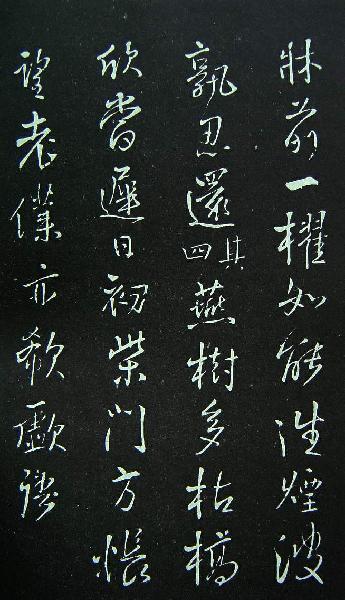 牀前一櫂如能往煙波
孰忍還其四燕樹多枯槁
欣當遲日初柴門方悵
望老僕亦欷歔